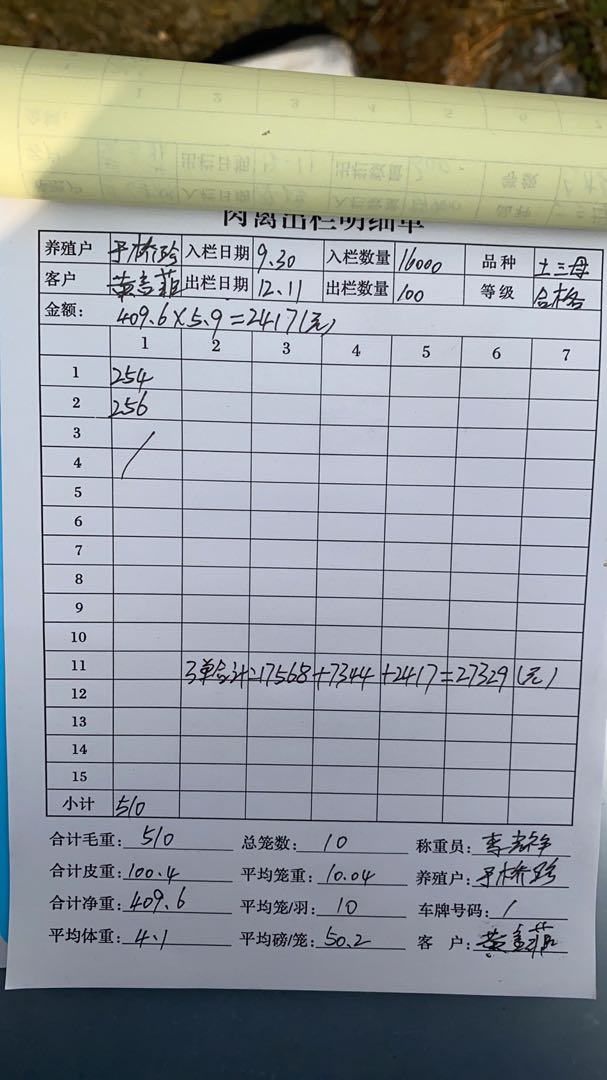 肉禽出栏明细单
养殖户 入栏日期 9.30 入栏数量 16000 品种 土三母
客户 出栏日期 12.11 出栏数量 100 等级 合格
金额: 409.6×5.9=2417(元)
1 2 3 4 5 6 7
1 254
2 256
3
4
5
6
7
8
9
10
11 3单合计=17568+7344+2417=27329(元)
12
13
14
15
小计 510
合计毛重: 510 总笼数: 10 称重员:
合计皮重: 100.4 平均笼重: 10.04 养殖户:
合计净重: 409.6 平均笼/羽: 10 车牌号码: /
平均体重: 4.1 平均磅/笼: 50.2 客 户: